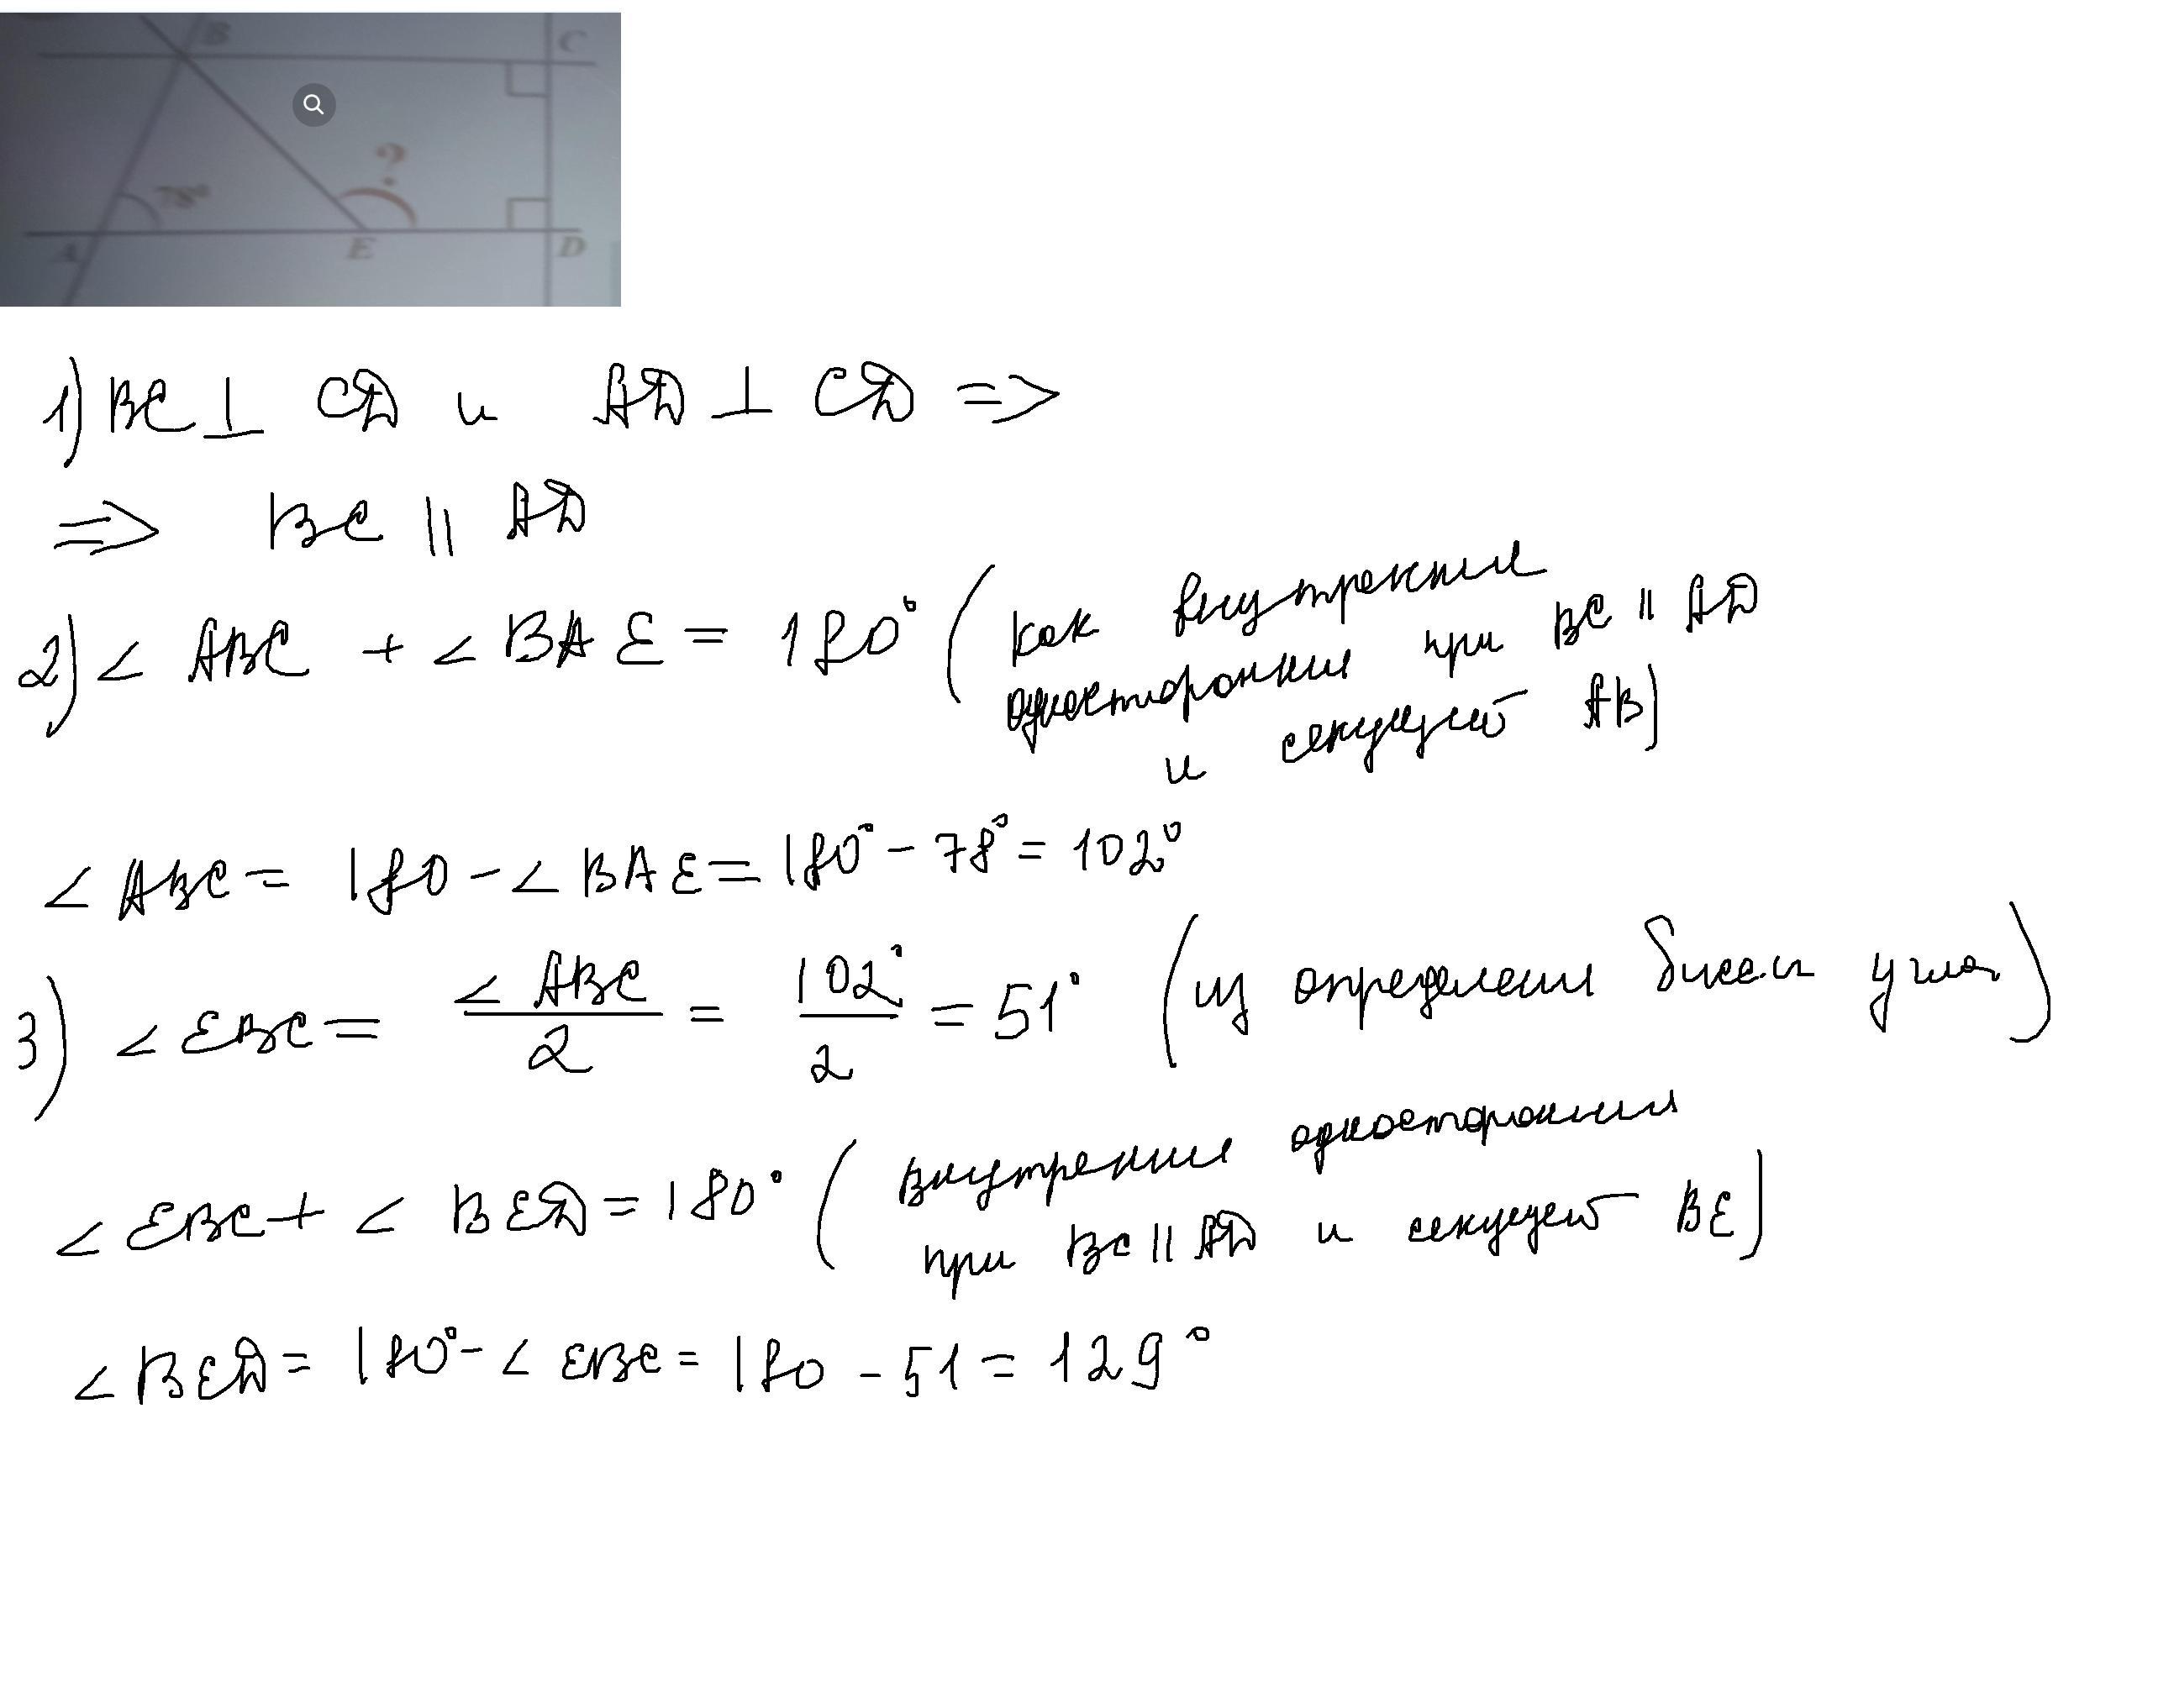 B C
78° ?
A E D
1) BC ⊥ CD и AD ⊥ CD =>
=> BC || AD
2) ∠ ABC + ∠ BAE = 180° (как внутренние
односторонние при BC || AD
и секущей AB)
∠ ABC = 180 - ∠ BAE = 180° - 78° = 102°
3) ∠ EBC = ∠ ABC / 2 = 102° / 2 = 51° (из определения биссем угла)
∠ EBC + ∠ BED = 180° (внутренние односторонние
при BC || AD и секущей BE)
∠ BED = 180° - ∠ EBC = 180 - 51 = 129°